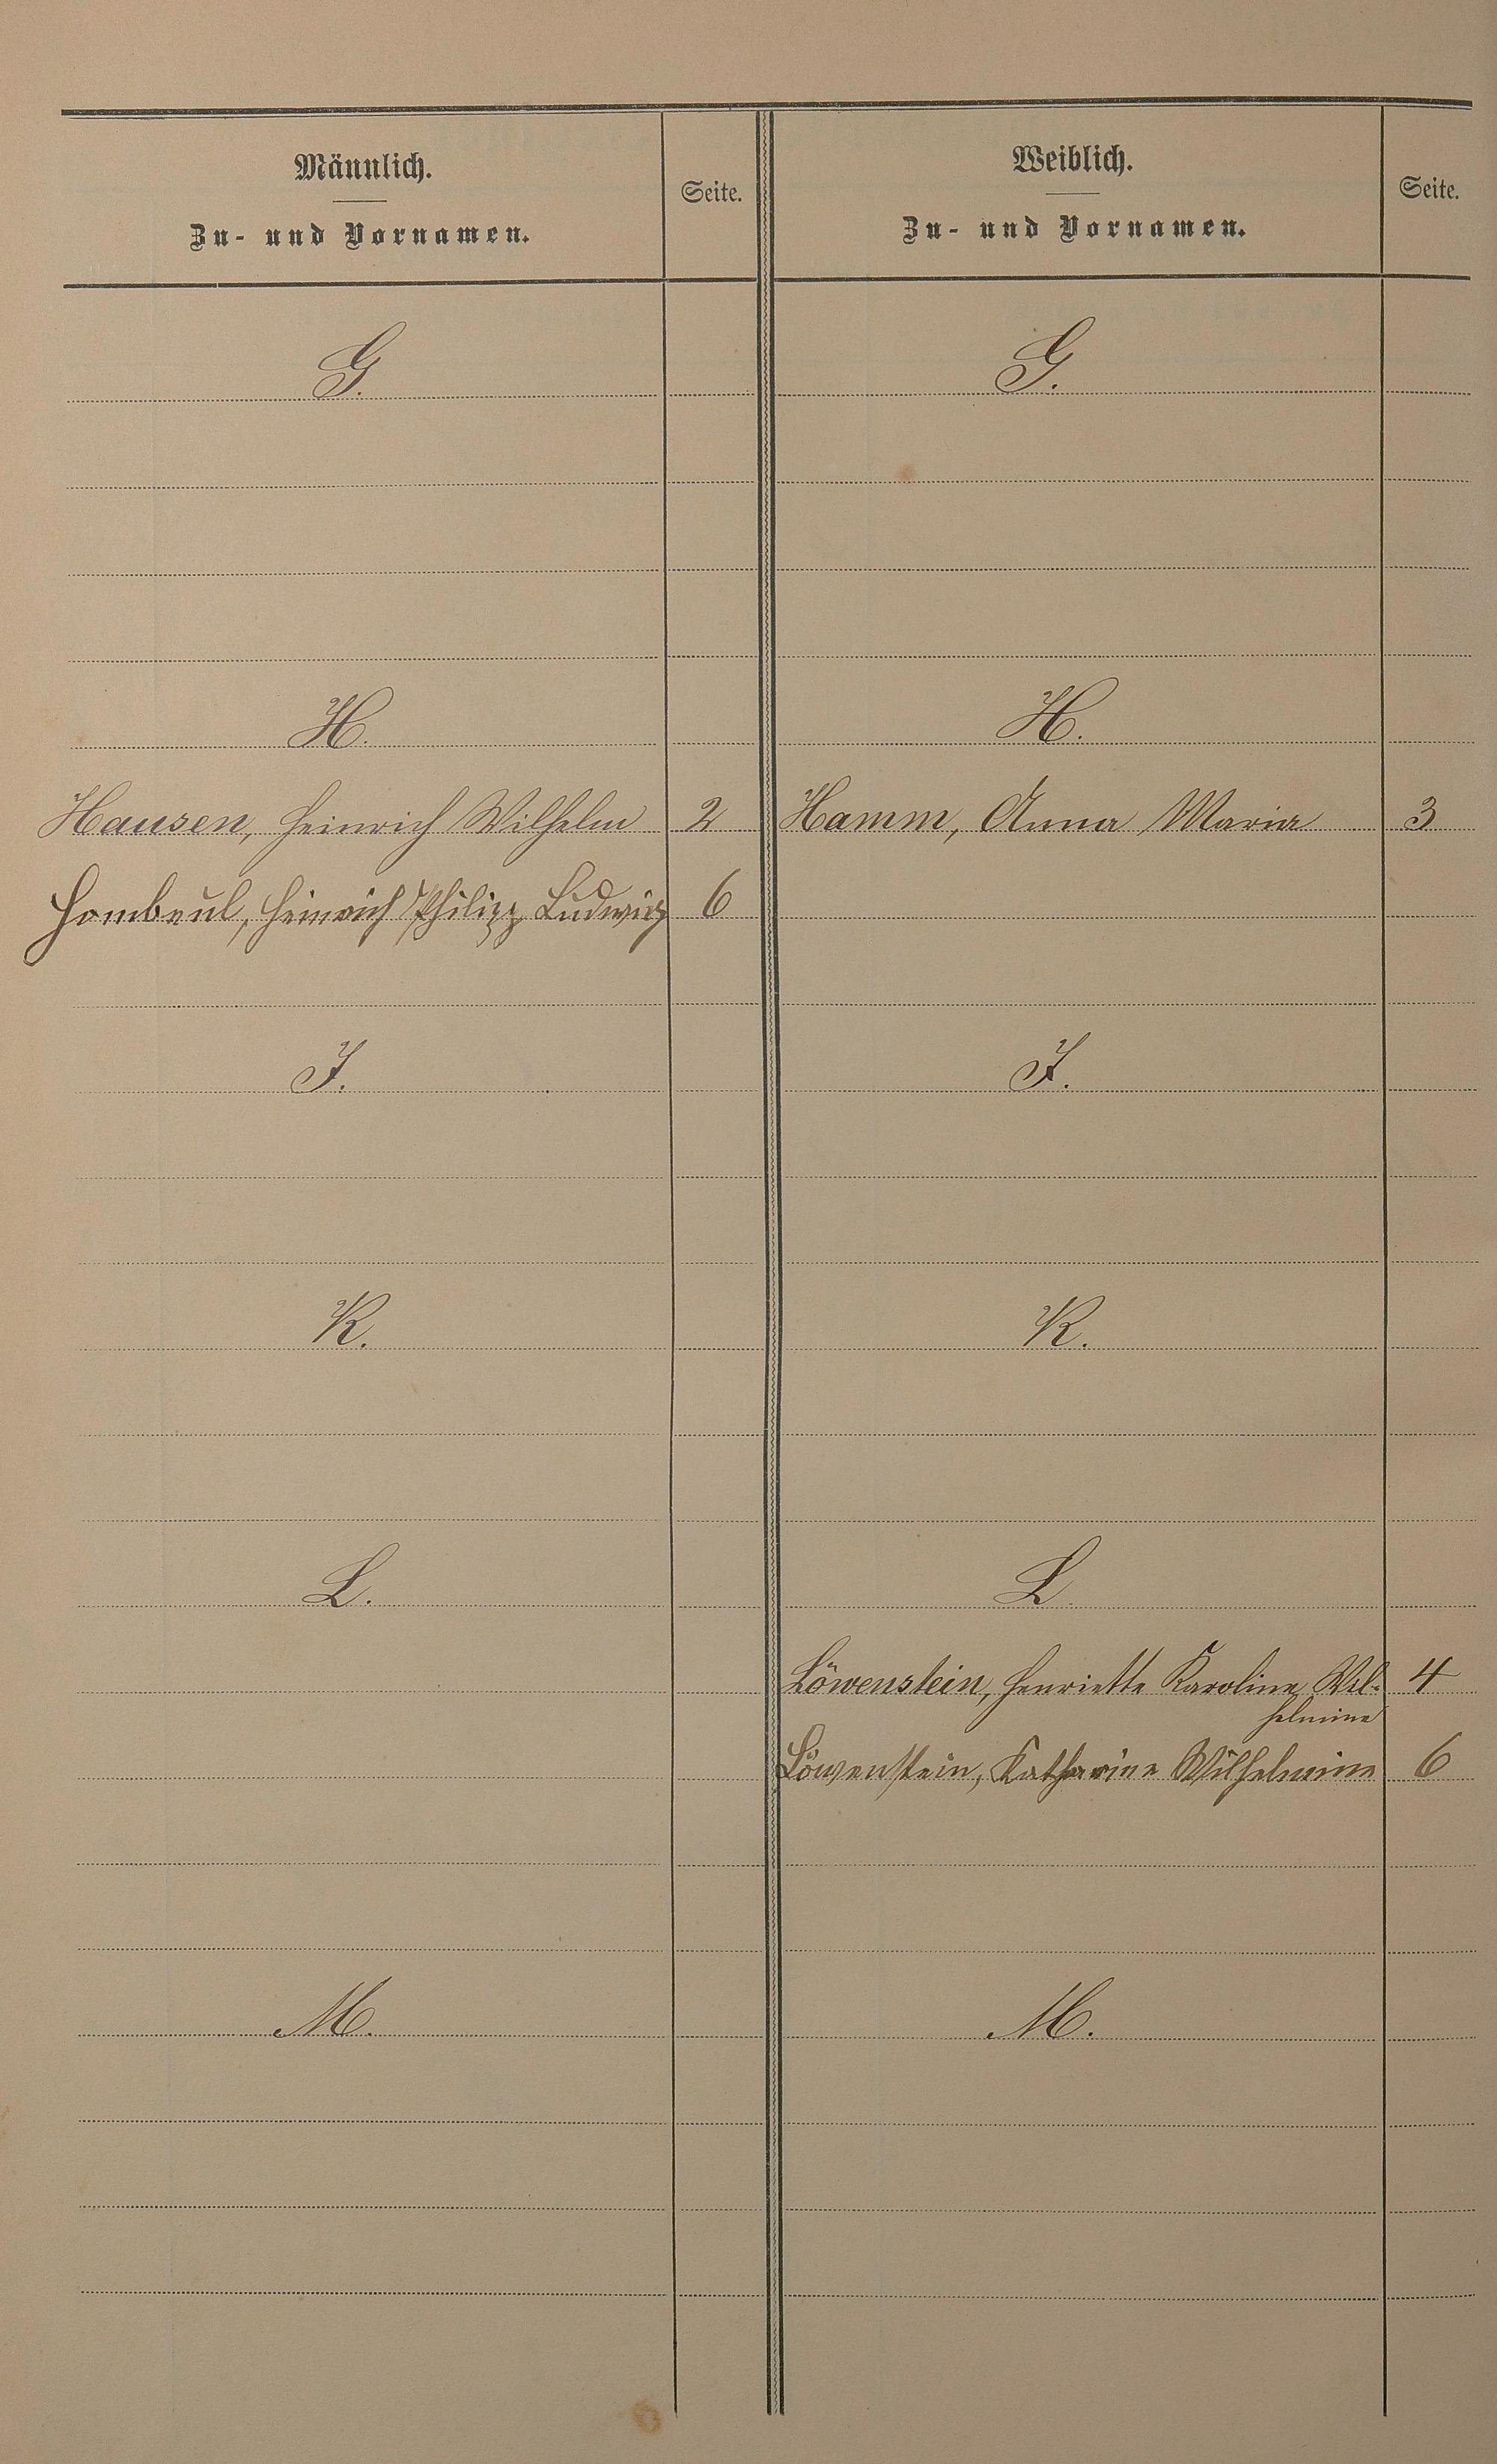 Männlich.
Zu- und Vornamen.
Seite.
Weiblich.
Zu- und Vornamen.
Seite.
G.
G.
H.
H.
Hausen, Heinrich Wilhelm 2
Hamm, Anna Maria 3
Hombeul, Heinrich Philipp Ludwig 6
J.
J.
K.
K.
L.
L.
Löwenstein, Henriette Karoline Wil- 4
helmine
Löwenstein, Katharine Wilhelmine 6
M.
M.